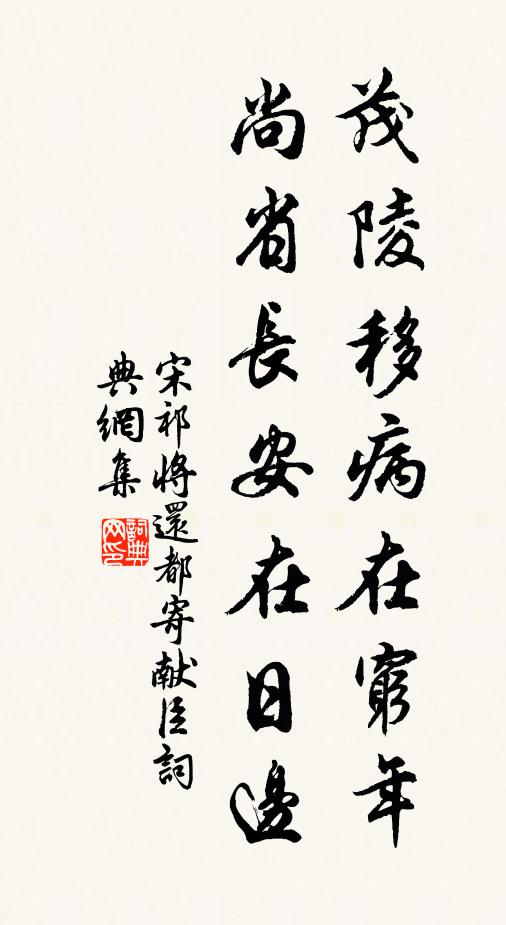 茂陵移病在窮年
尚省長安在日邊
宋祁將還都寄献臣詞
典網集
詞典
网印